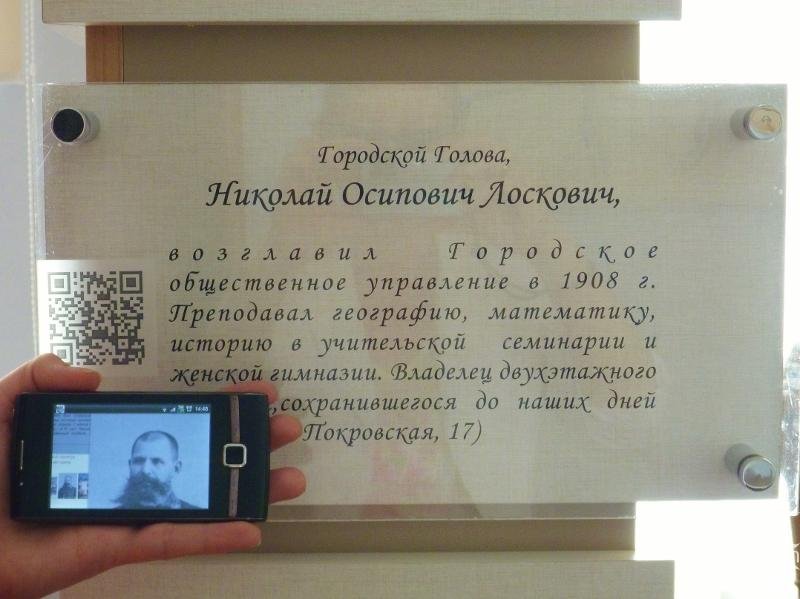 Городской Голова,
Николай Осипович Лоскович,
возглавил Городское
общественное управление в 1908 г.
Преподавал географию, математику,
историю в учительской семинарии и
женской гимназии. Владелец двухэтажного
,сохранившегося до наших дней
Покровская, 17)
14:48